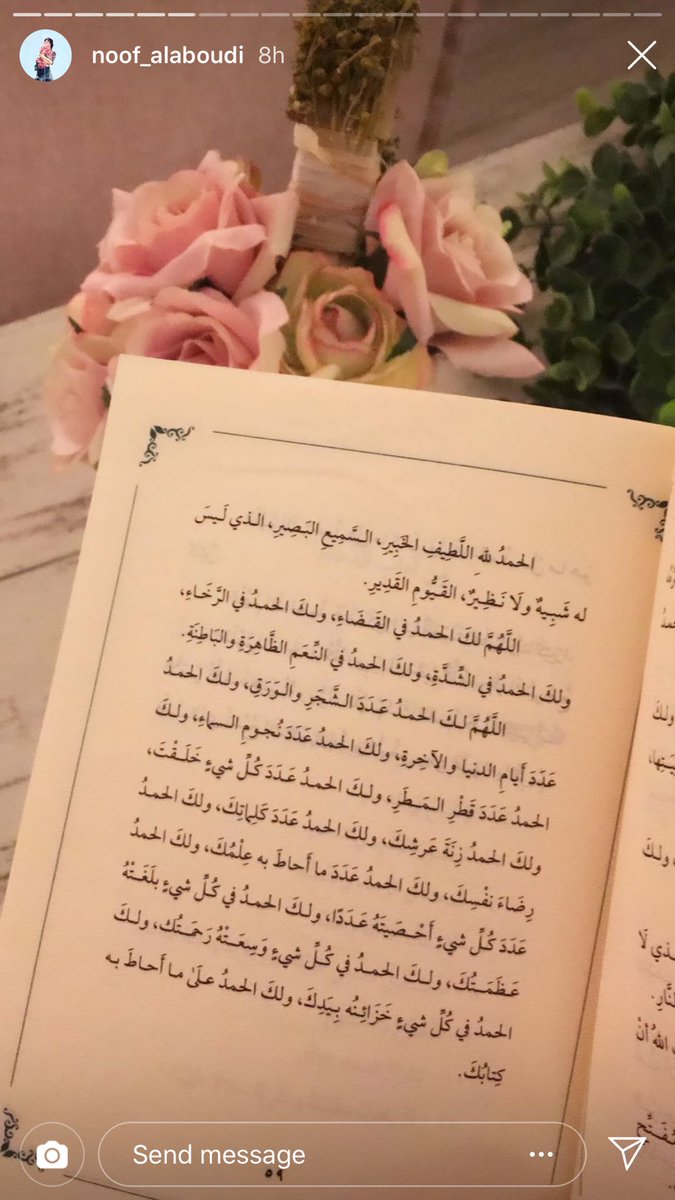 noof_alaboudi 8h
الحمدُ للهِ اللَّطِيفِ الخَبِيرِ، السَّمِيعِ البَصِيرِ، الـذي لَـيسَ
له شَبِيهٌ ولَا نَـظِيرٌ، القَـيُّومِ القَدِيرِ.
اللَّهُمَّ لكَ الحمدُ في القَـضَاءِ، ولكَ الحمدُ في الرَّخَـاءِ،
ولكَ الحمدُ في الشِّـدَّةِ، ولكَ الحمدُ في النِّـعَمِ الظَّاهِرَةِ والبَاطِنَةِ.
اللَّهُمَّ لـكَ الحمـدُ عَـدَدَ الـشَّجَرِ والـوَرَقِ، ولـكَ الحمـدُ
عَدَدَ أَيامِ الدنيا والآخِرةِ، ولكَ الحمدُ عَدَدَ نُجومِ السماءِ، ولـكَ
الحمدُ عَدَدَ قَطْرِ المَـطَرِ، ولكَ الحمدُ عَـدَدَ كُـلِّ شيءٍ خَلَـقْتَ،
ولكَ الحمدُ زِنَةَ عَرشِكَ، ولكَ الحمدُ عَدَدَ كَلِماتِكَ، ولكَ الحمدُ
رِضَاءَ نفْسِكَ، ولكَ الحمدُ عَدَدَ ما أَحاطَ به عِلْمُكَ، ولكَ الحمدُ
عَدَدَ كُلِّ شيءٍ أَحْـصَيتَهُ عَـدَدًا، ولكَ الحمـدُ في كُـلِّ شيءٍ بلَغَـتْهُ
عَـظَمَـتُكَ، ولـكَ الحمـدُ في كُـلِّ شيءٍ وَسِعَـتْهُ رَحمَـتُك، ولـكَ
الحمدُ في كُلِّ شيءٍ خَزَائِـنُه بِـيَدِكَ، ولكَ الحمدُ علَىٰ مـا أَحـاطَ بـه
كِتابُكَ.
Send message